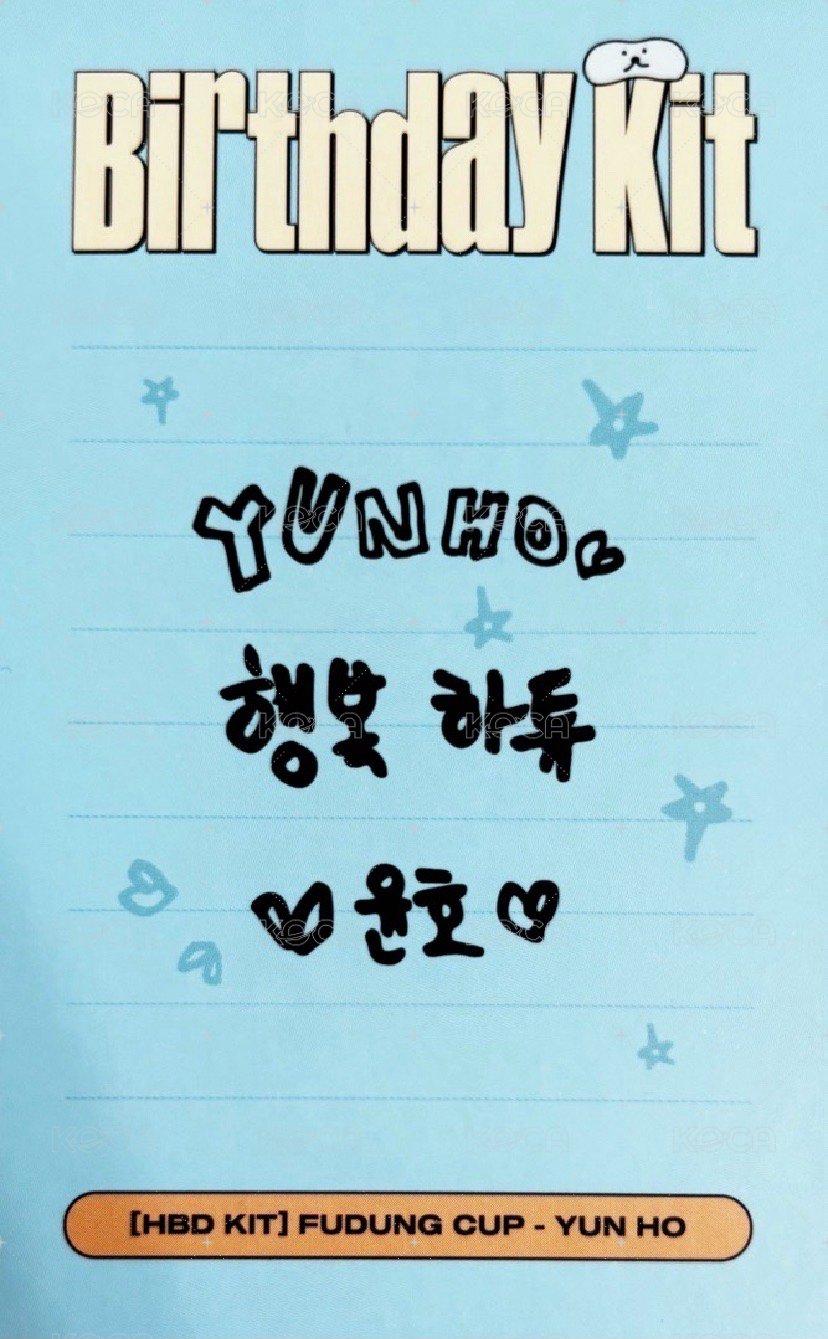 Birthday Kit
YUNHO
행복 하튜
윤호
[HBD KIT] FUDUNG CUP - YUN HO
KOCA